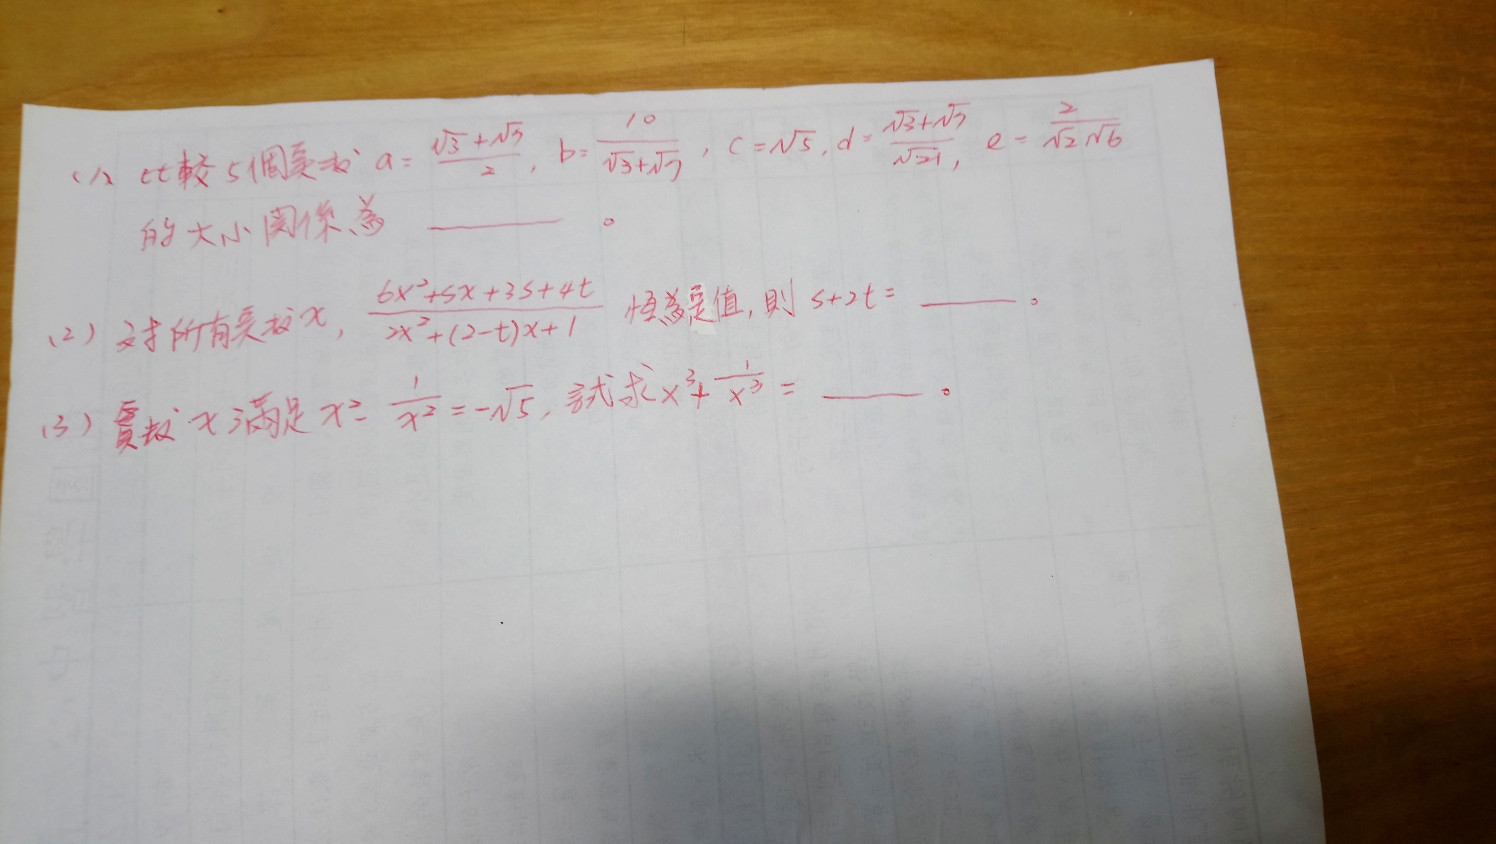 (1) 比較5個實数 a = (√3+√7)/2, b = 10/(√3+√7), c = √5, d = (√3+√7)/√21, e = 2/(√2√6)
的大小関係為 ______ 。
(2) 対所有実数x, (6x²+5x+3s+4t)/(2x²+(2-t)x+1) 恆為定值, 則 s+2t = ______ 。
(3) 實数 x 滿足 x² - 1/x² = -√5, 試求 x³ + 1/x³ = ______ 。